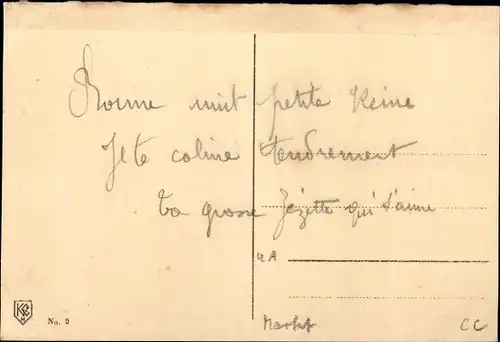 Bonne nuit petite Reine
Je te caline tendrement
Ta grosse Zézette qui t'aime
4A
No. 2
CC